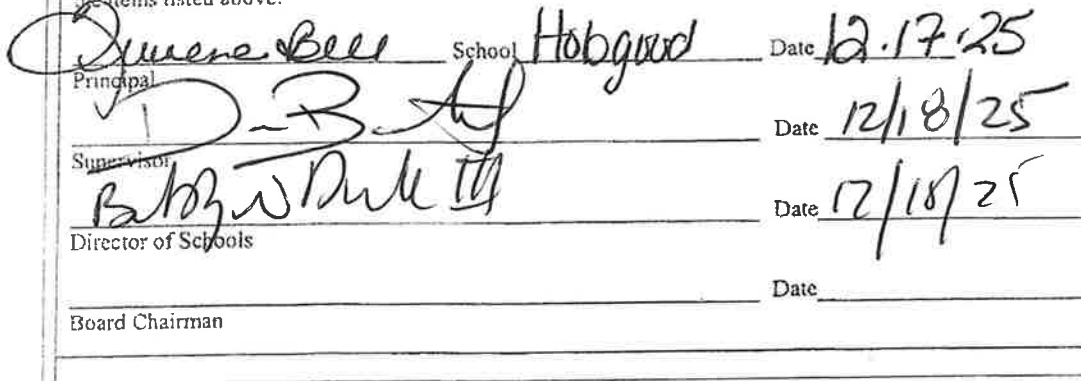 items listed above.
Bell School Hobgood Date 12.17.25
Principal
Date 12/18/25
Supervisor
Bobby N Duke III Date 12/18/25
Director of Schools
Date
Board Chairman